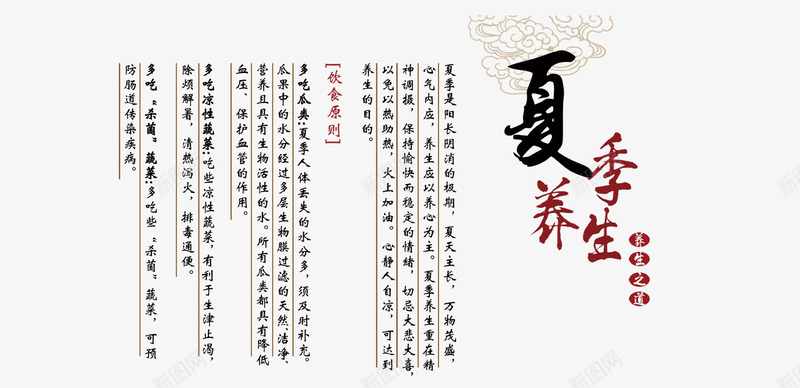 夏
季
养生
养生之道
夏季是阳长阴消的极期，夏天主长，万物茂盛，
心气内应，养生应以养心为主。夏季养生重在精
神调摄，保持愉快而稳定的情绪，切忌大悲大喜，
以免以热助热，火上加油。心静人自凉，可达到
养生的目的。
[饮食原则]
多吃瓜类:夏季人体丢失的水分多，须及时补充。
瓜果中的水分经过多层生物膜过滤的天然、洁净、
营养且具有生物活性的水。所有瓜类都具有降低
血压、保护血管的作用。
多吃凉性蔬菜:吃些凉性蔬菜，有利于生津止渴，
除烦解暑，清热泻火，排毒通便。
多吃“杀菌”蔬菜:多吃些“杀菌”蔬菜，可预
防肠道传染疾病。